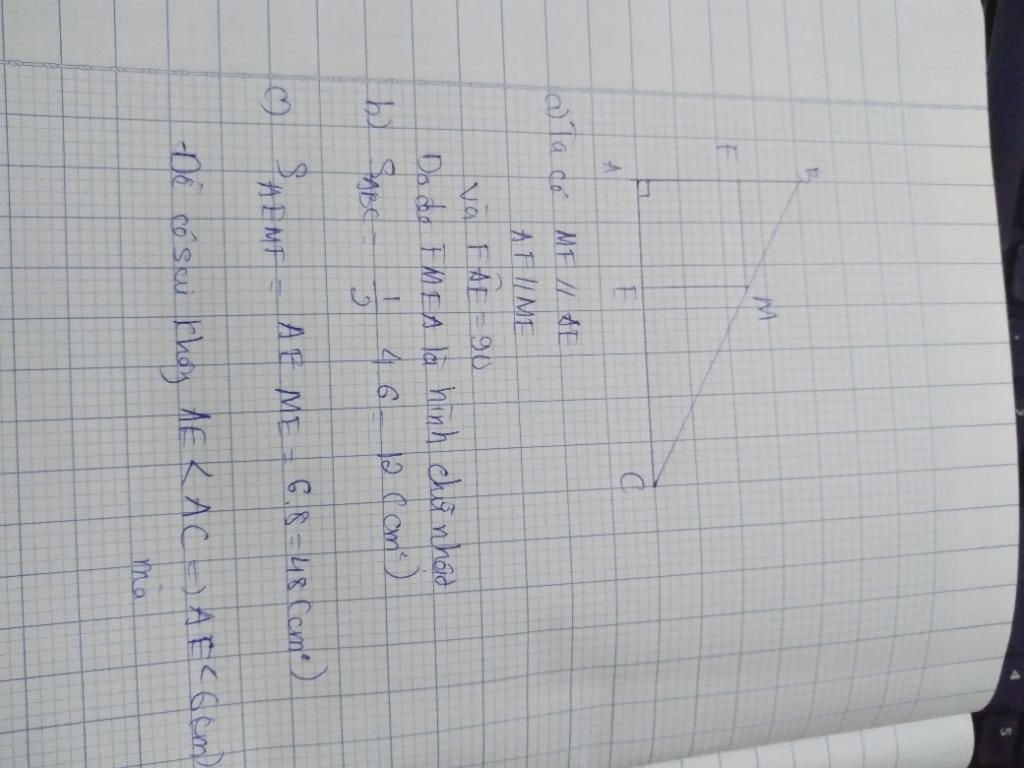 B
F
M
A
E
C
a) Ta có MF // AE
AF // ME
và FÂE = 90
Do đó FMEA là hình chữ nhật
b) S_ABC = 1/2 4 6 = 12 (cm²)
c) S_AEMF = AE ME = 6.8 = 48 (cm²)
AE < AC => AE < 6 cm)
mà